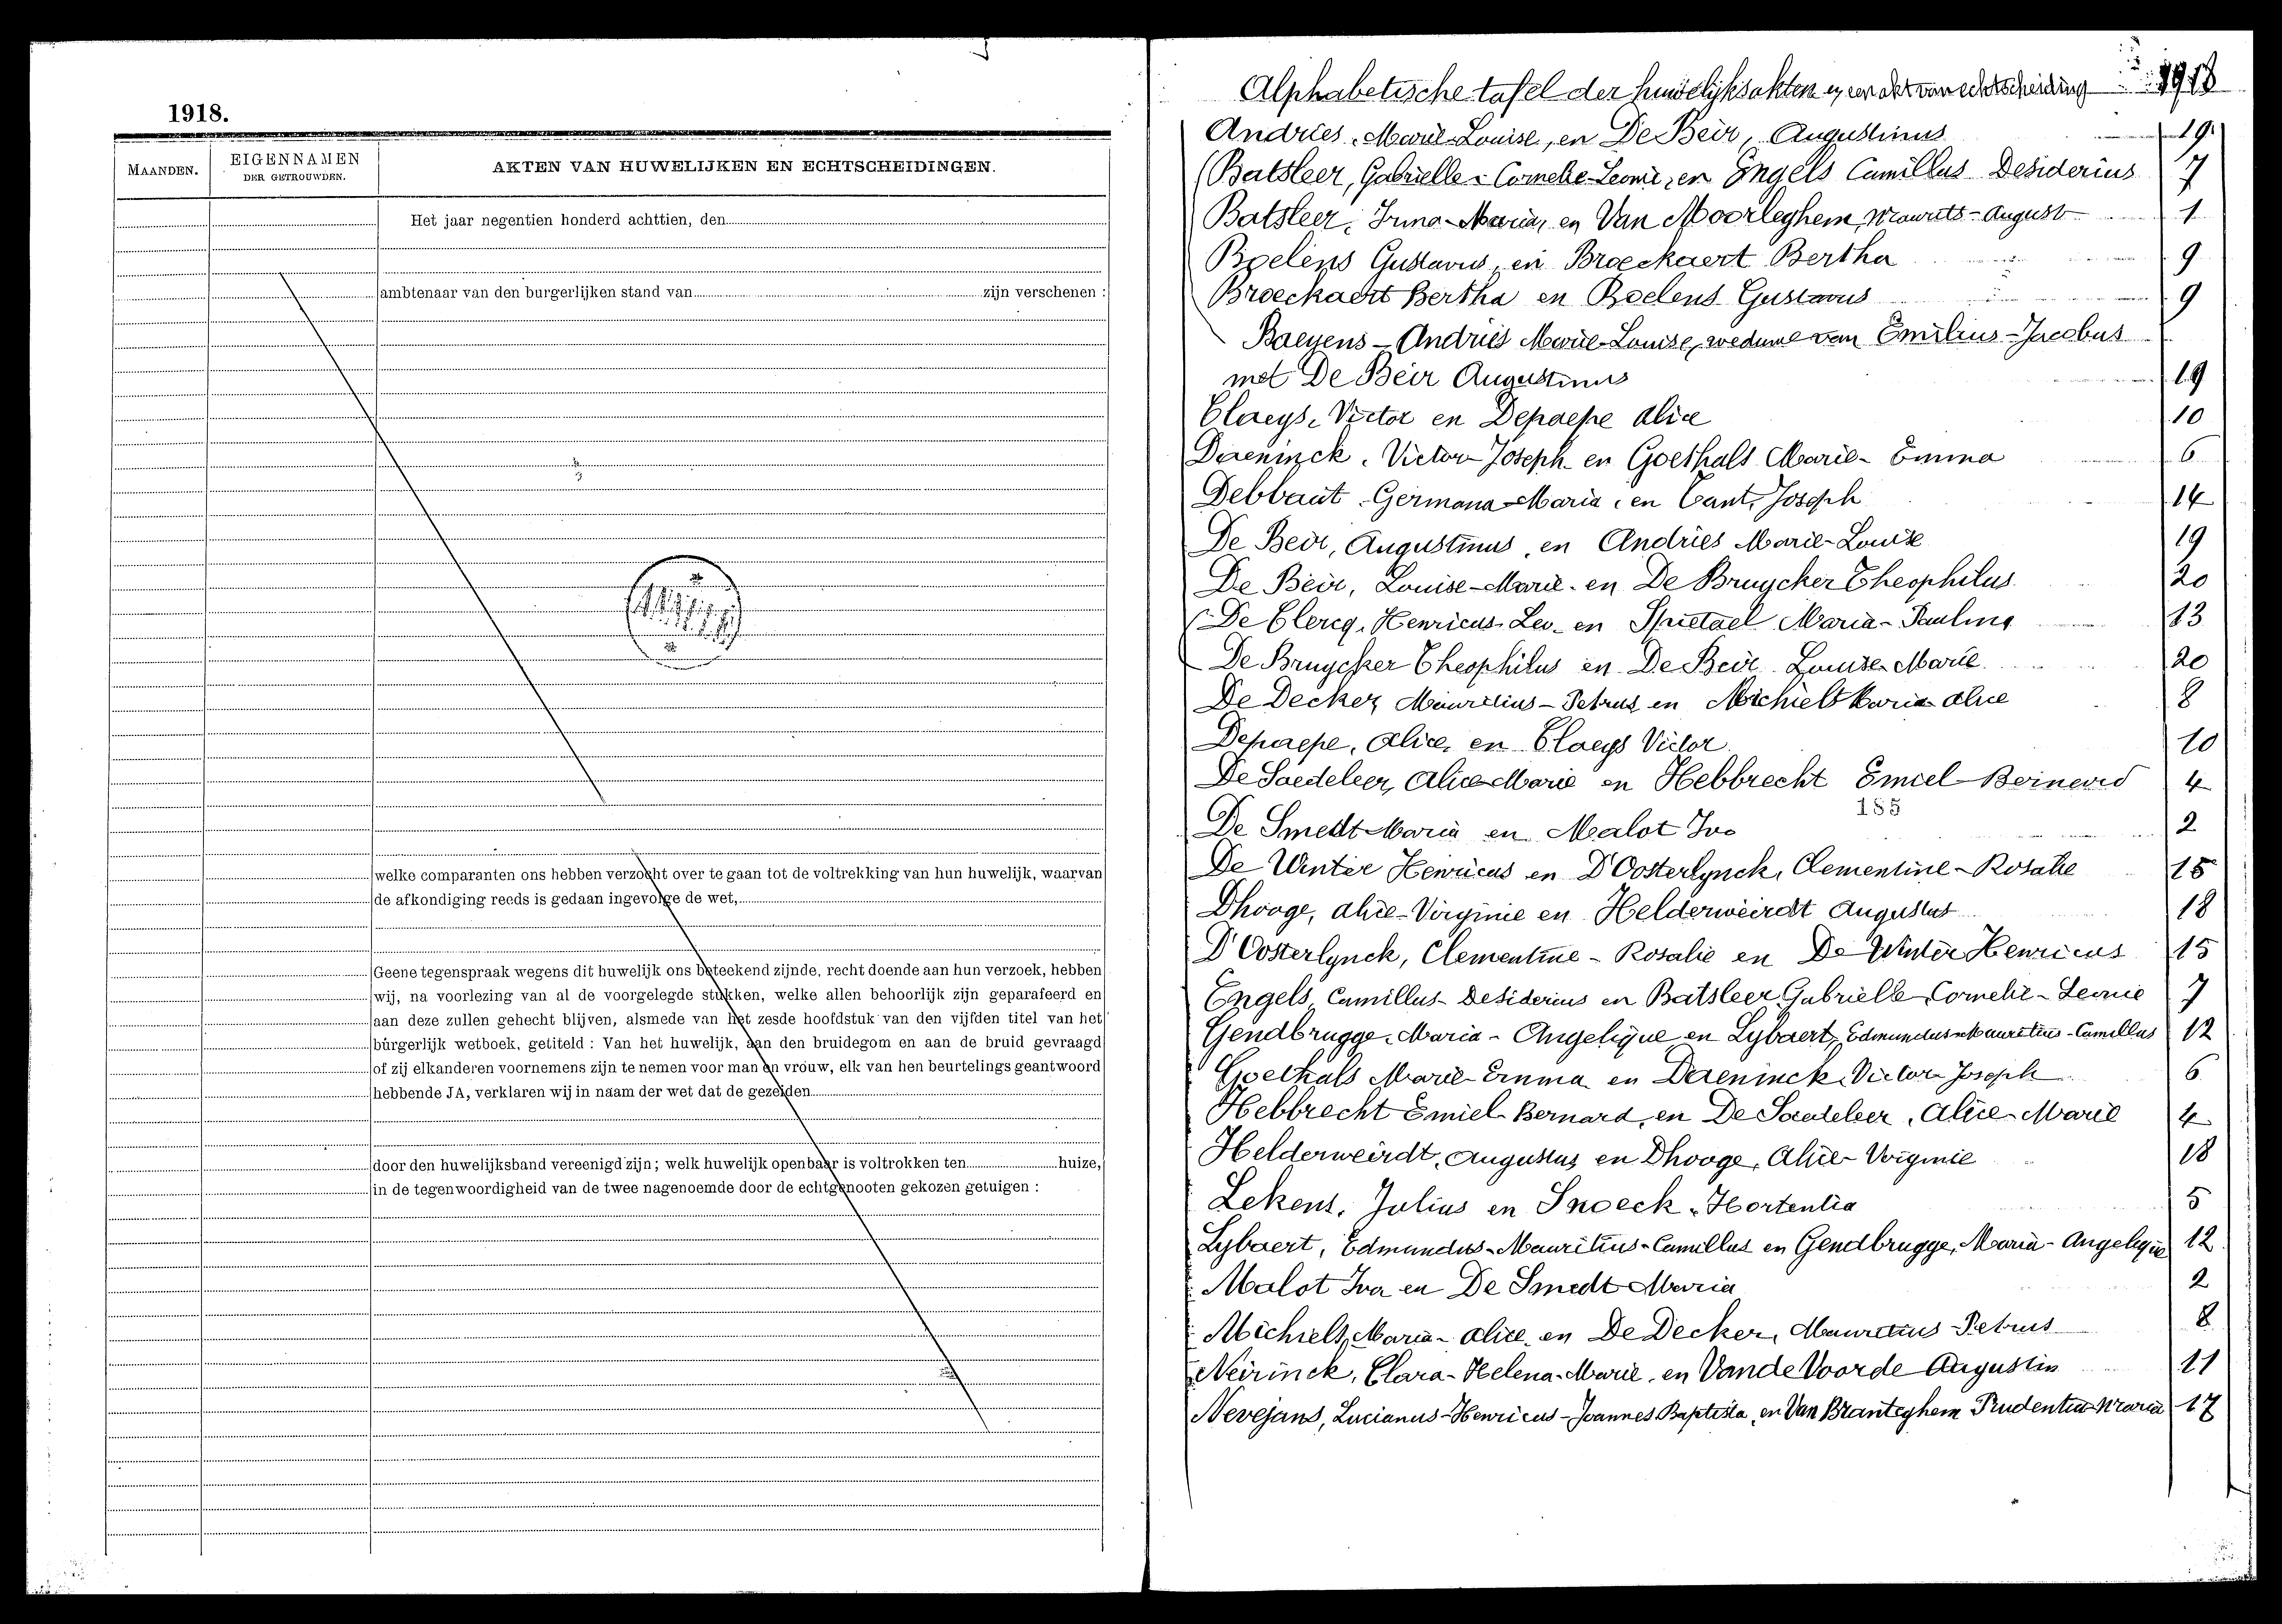 1918.
MAANDEN.
EIGENNAMEN
DER GETROUWDEN.
AKTEN VAN HUWELIJKEN EN ECHTSCHEIDINGEN.
Het jaar negentien honderd achttien, den
ambtenaar van den burgerlijken stand van zijn verschenen :
welke comparanten ons hebben verzocht over te gaan tot de voltrekking van hun huwelijk, waarvan
de afkondiging reeds is gedaan ingevolge de wet,
Geene tegenspraak wegens dit huwelijk ons beteekend zijnde, recht doende aan hun verzoek, hebben
wij, na voorlezing van al de voorgelegde stukken, welke allen behoorlijk zijn geparafeerd en
aan deze zullen gehecht blijven, alsmede van het zesde hoofdstuk van den vijfden titel van het
burgerlijk wetboek, getiteld : Van het huwelijk, aan den bruidegom en aan de bruid gevraagd
of zij elkanderen voornemens zijn te nemen voor man en vrouw, elk van hen beurtelings geantwoord
hebbende JA, verklaren wij in naam der wet dat de gezeiden
door den huwelijksband vereenigd zijn ; welk huwelijk openbaar is voltrokken ten huize,
in de tegenwoordigheid van de twee nagenoemde door de echtgenooten gekozen getuigen :
Alphabetische tafel der huwelijksakten en een akt van echtscheiding 1918
Andries, Marie-Louise, en De Beir, Augustinus 19
Batsleer, Gabrielle-Cornelie-Leonie, en Engels Camillus Desiderius 7
Batsleer, Irma-Maria, en Van Moorleghem, Maurits-August 1
Boelens Gustavus, en Broeckaert Bertha 9
Broeckaert Bertha en Boelens Gustavus 9
Baeyens - Andries Marie-Louise, weduwe van Emilius-Jacobus
met De Beir Augustinus 19
Claeys, Victor en Depaepe Alice 10
Dereninck, Victor-Joseph en Goethals Marie-Emma 6
Debbaut Germana-Maria, en Cant, Joseph 14
De Beir, Augustinus, en Andries Marie-Louise 19
De Beir, Louise-Marie en De Bruycker Theophilus 20
De Clercq, Henricus-Leo en Spietael Maria-Paulina 13
De Bruycker Theophilus en De Beir Louise-Marie 20
De Decker, Mauritius-Petrus en Michiels Maria Alice 8
Depaepe, Alice, en Claeys Victor 10
De Saedeleer, Alice Marie en Hebbrecht Emiel-Bernard 4
188
De Smedt Maria en Malot Ivo 2
De Winter Henricus en D'Oosterlynck, Clementine-Rosalie 15
Dhooge, Alice-Virginie en Helderweirdt Augustus 18
D'Oosterlynck, Clementine-Rosalie en De Winter Henricus 15
Engels, Camillus-Desiderius en Batsleer Gabrielle, Cornelie-Leonie 7
Gendbrugge, Maria-Angelique en Lybaert, Edmundus-Mauritius-Camillus 12
Goethals Marie-Emma en Dereninck, Victor Joseph 6
Hebbrecht Emiel-Bernard, en De Saedeleer, Alice-Marie 4
Helderweirdt, Augustus en Dhooge, Alice-Virginie 18
Lekens, Julius en Snoeck, Hortentia 5
Lybaert, Edmundus-Mauritius-Camillus en Gendbrugge, Maria-Angelique 12
Malot Ivo en De Smedt Maria 2
Michiels, Maria-Alice, en De Decker, Mauritius-Petrus 8
Neirinck, Clara-Helena-Marie, en Vande Voorde Augustin 11
Nevejans, Lucianus-Henricus-Joannes Baptista, en Van Branteghem Prudentia Maria 17